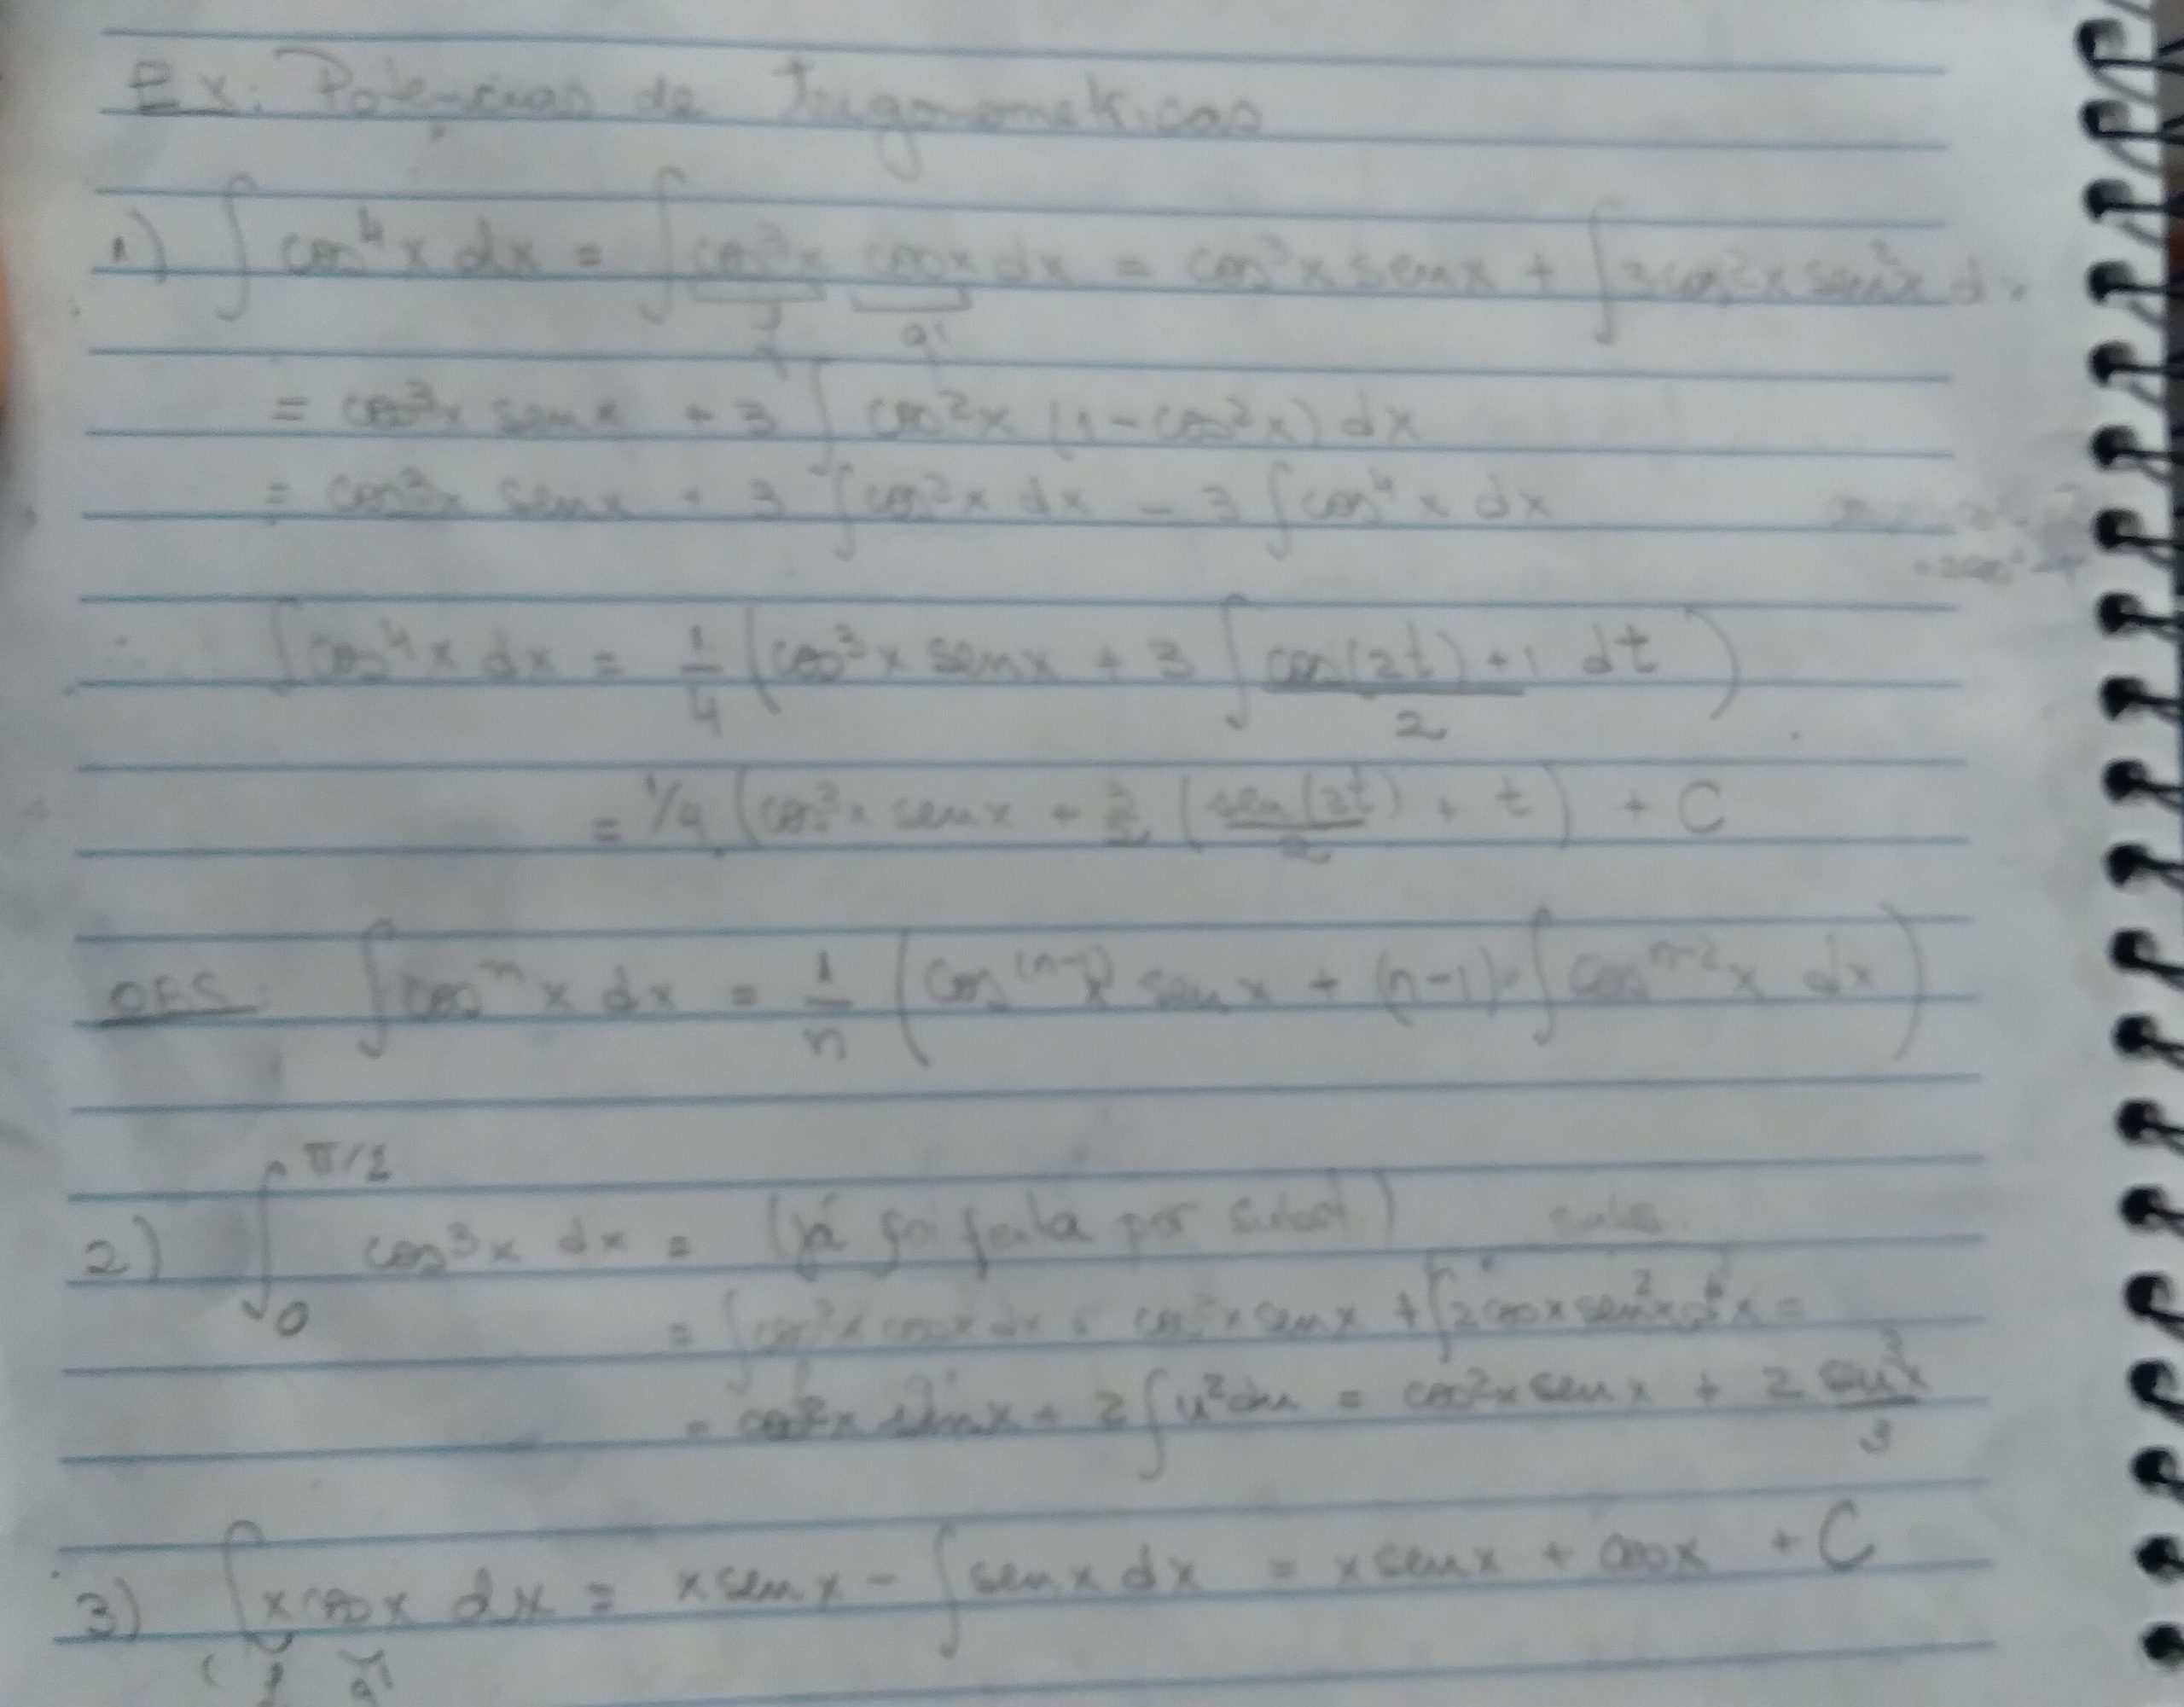 Ex: Potencias de Trigonometricas
1) ∫ cos⁴x dx = ∫ cos³x cosx dx = cos³x senx + ∫ 3cos²x sen²x dx
f g'
= cos³x senx + 3 ∫ cos²x (1-cos²x) dx
= cos³x senx + 3 ∫ cos²x dx - 3 ∫ cos⁴x dx
∴ ∫ cos⁴x dx = 1/4 (cos³x senx + 3 ∫ (cos(2t)+1)/2 dt)
= 1/4 (cos³x senx + 3/2 (sen(2t)/2 + t) + C
OBS: ∫ cosⁿx dx = 1/n (cos⁽ⁿ⁻¹⁾x senx + (n-1)·∫ cosⁿ⁻²x dx)
2) ∫₀^π/2 cos³x dx = (já foi feita por subst.) subs.
= ∫ cos²x cosx dx = cos²x senx + ∫ 2cosx sen²x dx =
f g'
= cos²x senx + 2 ∫ u² du = cos²x senx + 2 sen³x/3
3) ∫ x cosx dx = x senx - ∫ senx dx = x senx + cosx + C
f g'